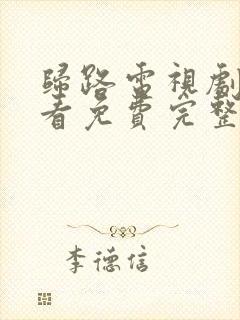 歸路電視劇
看免費完整
李德信